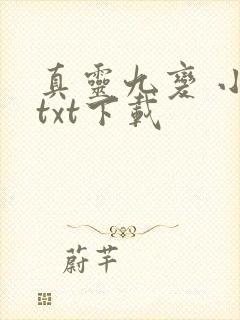 真靈九變 小
txt下載
蔚芊